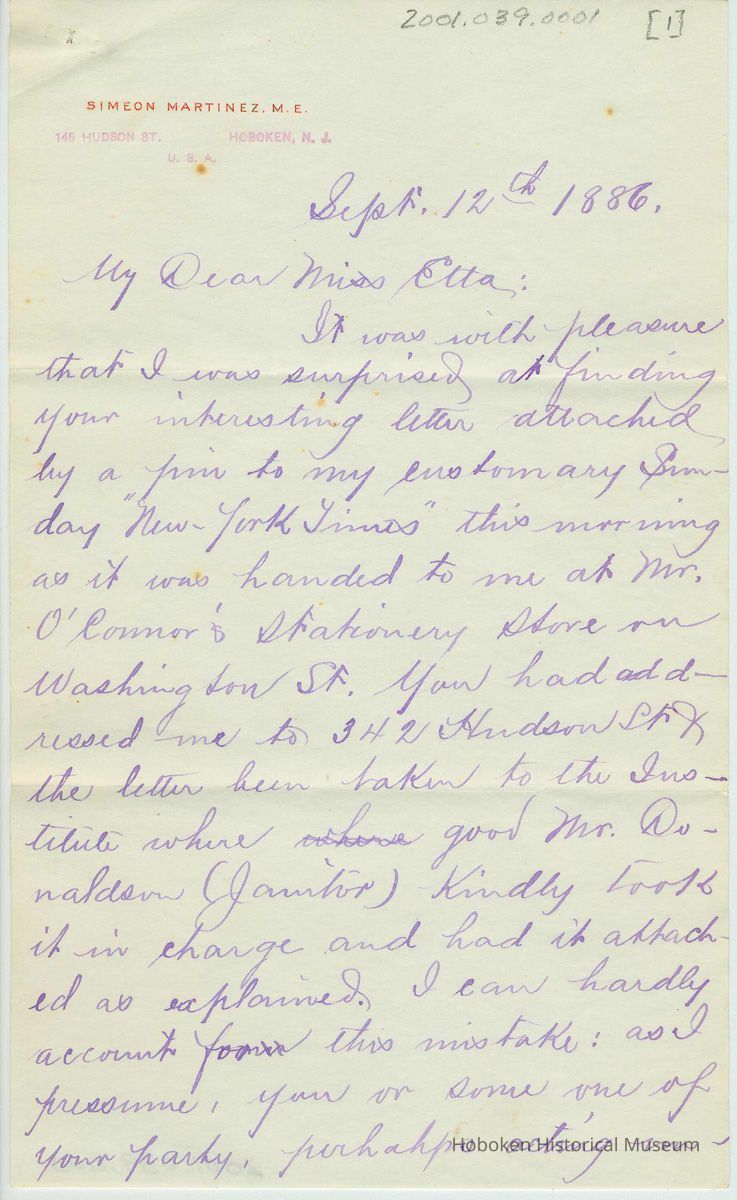 2001.039.0001 [1]
SIMEON MARTINEZ, M.E.
145 HUDSON ST. HOBOKEN, N. J.
U. S. A.
Sept. 12th 1886.
My Dear Miss Etta:
It was with pleasure
that I was surprised, at finding
your interesting letter attached,
by a pin to my customary Sun-
day "New-York Times" this morning
as it was handed to me at Mr.
O'Connor's stationery store on
Washington St. You had add-
ressed me to 342 Hudson St. &
the letter been taken to the Ins-
titute where where good Mr. Do-
naldson (Janitor) kindly took
it in charge and had it attach-
ed as explained. I can hardly
account for this mistake: as I
pressume, you or some one of
your party, perhahps acting
Hoboken Historical Museum